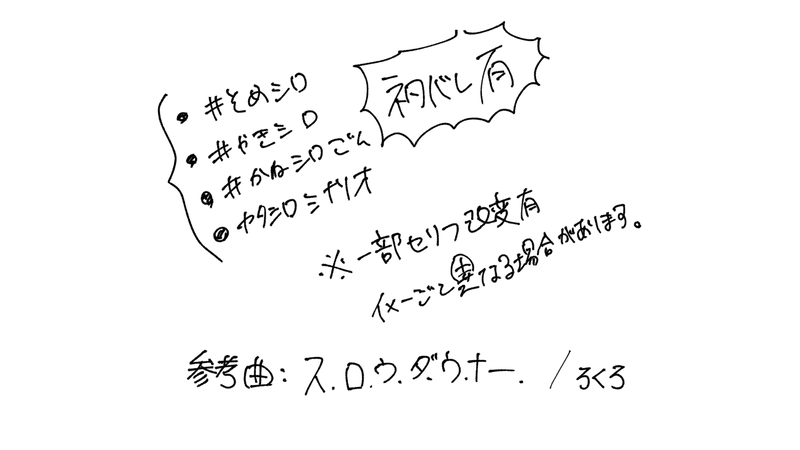 ・#そめシロ
・#やきシロ
・#かねシロごん
・ヤタシロシヤリオ
ネタバレ有
※一部セリフ改変有
イメージと異なる場合があります。
参考曲:ス.ロ.ウ.ダ.ウ.ナー. /ろくろ